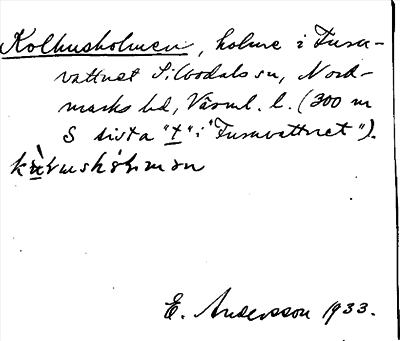 Kolhusholmen, holme i Fusa-
vattnet Silbodals sn, Nord-
marks hd, Värml. l. (300 m
S sista "t" i "Fusavattnet").
E. Andersson 1933.